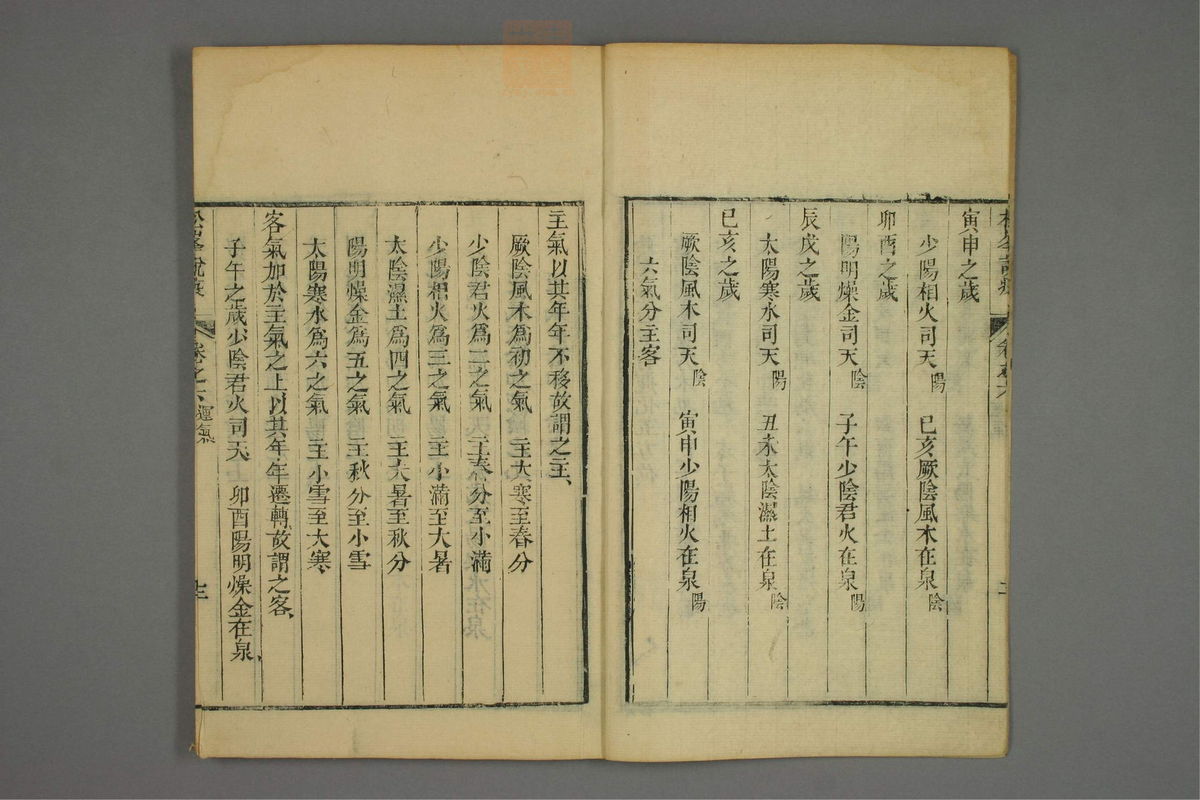 寅申之歲
少陽相火司天陽　巳亥厥陰風木在泉陰
卯酉之歲
陽明燥金司天陰　子午少陰君火在泉陽
辰戌之歲
太陽寒水司天陽　丑未太陰濕土在泉陰
巳亥之歲
厥陰風木司天陰　寅申少陽相火在泉陽
六氣分主客
主氣以其年年不移故謂之主、
厥陰風木爲初之氣　主大寒至春分
少陰君火爲二之氣　主春分至小滿
少陽相火爲三之氣　主小滿至大暑
太陰濕土爲四之氣　主大暑至秋分
陽明燥金爲五之氣　主秋分至小雪
太陽寒水爲六之氣　主小雪至大寒、
客氣加於主氣之上以其年年遷轉故謂之客、
子午之歲少陰君火司天、卯酉陽明燥金在泉、
松峯說疫　卷之六 運氣